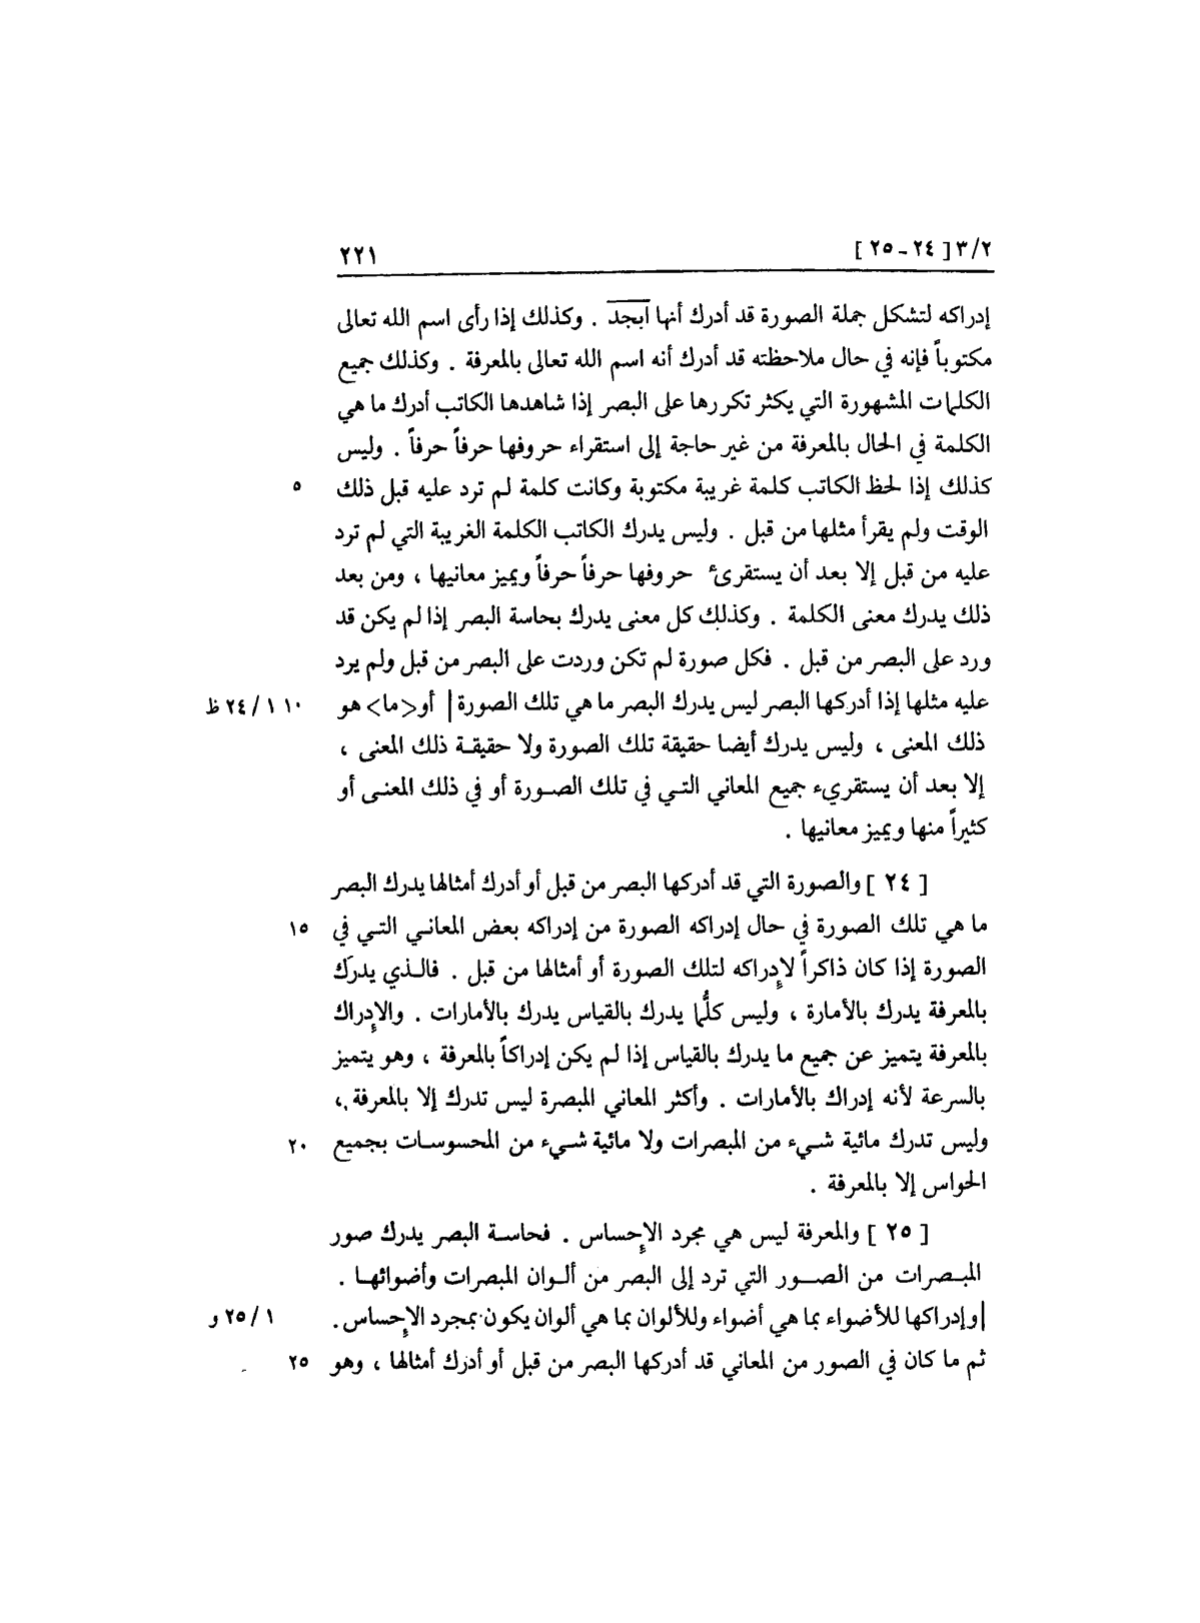 ٣/٢ [ ٢٤ - ٢٥ ] ٢٢١
إدراكه لتشكل جملة الصورة قد أدرك أنها ابجد . وكذلك إذا رأى اسم الله تعالى
مكتوباً فإنه في حال ملاحظته قد أدرك أنه اسم الله تعالى بالمعرفة . وكذلك جميع
الكلمات المشهورة التي يكثر تكررها على البصر إذا شاهدها الكاتب أدرك ما هي
الكلمة في الحال بالمعرفة من غير حاجة إلى استقراء حروفها حرفاً حرفاً . وليس
كذلك إذا لحظ الكاتب كلمة غريبة مكتوبة وكانت كلمة لم ترد عليه قبل ذلك ٥
الوقت ولم يقرأ مثلها من قبل . وليس يدرك الكاتب الكلمة الغريبة التي لم ترد
عليه من قبل إلا بعد أن يستقرئ حروفها حرفاً حرفاً ويميز معانيها ، ومن بعد
ذلك يدرك معنى الكلمة . وكذلك كل معنى يدرك بحاسة البصر إذا لم يكن قد
ورد على البصر من قبل . فكل صورة لم تكن وردت على البصر من قبل ولم يرد
عليه مثلها إذا أدركها البصر ليس يدرك البصر ما هي تلك الصورة | أو <ما> هو ١٠ ١ / ٢٤ ظ
ذلك المعنى ، وليس يدرك أيضا حقيقة تلك الصورة ولا حقيقة ذلك المعنى ،
إلا بعد أن يستقريء جميع المعاني التي في تلك الصورة أو في ذلك المعنى أو
كثيراً منها ويميز معانيها .
[ ٢٤ ] والصورة التي قد أدركها البصر من قبل أو أدرك أمثالها يدرك البصر
ما هي تلك الصورة في حال إدراكه الصورة من إدراكه بعض المعاني التي في ١٥
الصورة إذا كان ذاكراً لإدراكه لتلك الصورة أو أمثالها من قبل . فالذي يدرك
بالمعرفة يدرك بالأمارة ، وليس كلُّما يدرك بالقياس يدرك بالأمارات . والإدراك
بالمعرفة يتميز عن جميع ما يدرك بالقياس إذا لم يكن إدراكاً بالمعرفة ، وهو يتميز
بالسرعة لأنه إدراك بالأمارات . وأكثر المعاني المبصرة ليس تدرك إلا بالمعرفة ،
وليس تدرك مائية شيء من المبصرات ولا مائية شيء من المحسوسات بجميع ٢٠
الحواس إلا بالمعرفة .
[ ٢٥ ] والمعرفة ليس هي مجرد الإحساس . فحاسة البصر يدرك صور
المبصرات من الصور التي ترد إلى البصر من ألوان المبصرات وأضوائها .
| وإدراكها للأضواء بما هي أضواء وللألوان بما هي ألوان يكون بمجرد الإحساس . ١ / ٢٥ و
ثم ما كان في الصور من المعاني قد أدركها البصر من قبل أو أدرك أمثالها ، وهو ٢٥